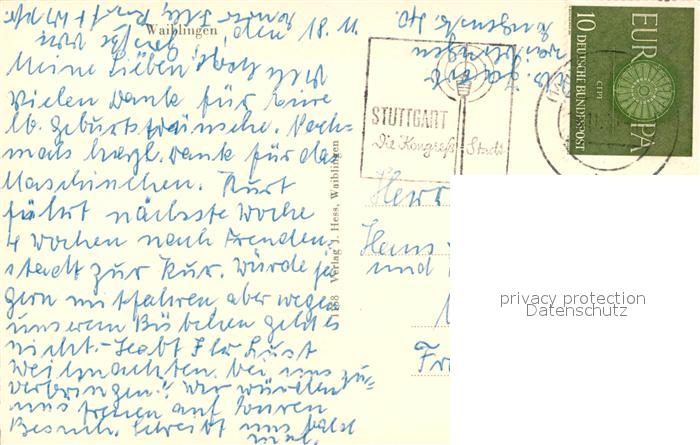 Waiblingen, den 18. 11.
Meine Lieben!
Vielen Dank für Eure
lb. Geburtstagswünsche. Noch-
mals herzl. Dank für das
Maschinchen. Kurt
fährt nächste Woche
4 Wochen nach Freuden-
stadt zur Kur. Würde ja
gern mitfahren aber wegen
unserem Bübchen geht es
nicht.- Habt Ihr Lust
Weihnachten bei uns zu-
verbringen? Wir würden
uns freuen auf Euren
Besuch. Schreibt uns bald
mal.
1188 Verlag J. Hess, Waiblingen
STUTTGART
Die Kongreß-Stadt
EUROPA
CEPT
10 DEUTSCHE BUNDESPOST
Herr
Hans
und
Fr
privacy protection
Datenschutz